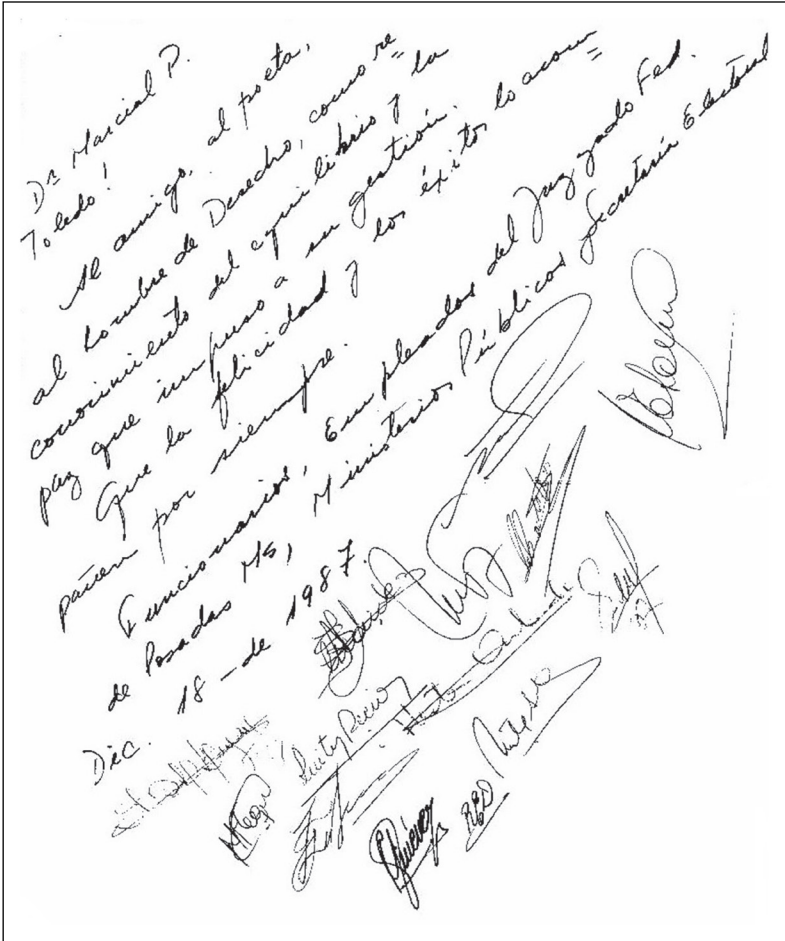 Dr Marcial P.
Toledo!
Al amigo, al poeta,
al hombre de Derecho, como re=
conocimiento del equilibrio y la
paz que impuso a su gestión.
Que la felicidad y los éxitos lo acom=
pañen por siempre.
Funcionarios, Empleados del Juzgado Fed.
de Posadas Ms, Ministerios Públicos y Secretaría Electoral
Dic. 18 - de 1987.